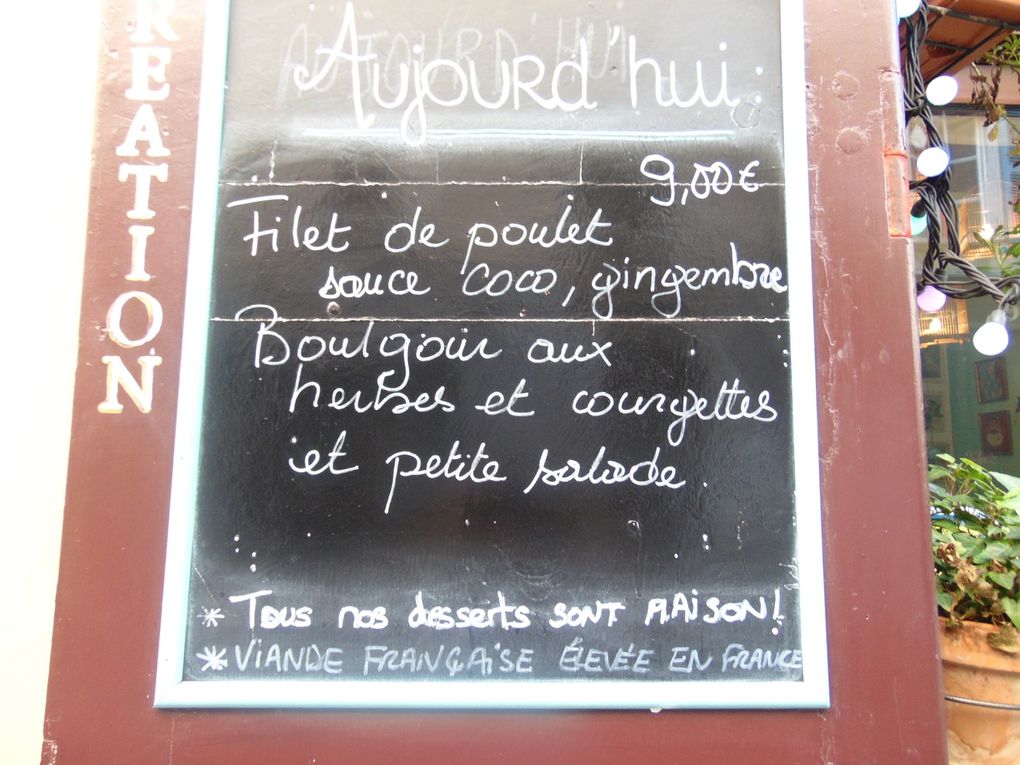 REATION
Aujourd'hui :
9,00€
Filet de poulet
sauce coco, gingembre
Boulgour aux
herbes et courgettes
et petite salade.
* Tous nos desserts SONT MAISON!
* VIANDE FRANÇAISE ÉLEVÉE EN FRANCE